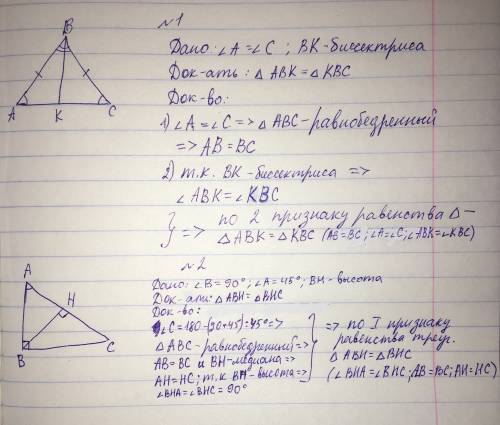 №1
Дано: ∠A=∠C ; BK-биссектриса
Док-ать: △ABK=△KBC
Док-во:
1) ∠A=∠C => △ABC-равнобедренный
=> AB=BC
2) т.к. BK-биссектриса =>
∠ABK=∠KBC
} => по 2 признаку равенства △-
△ABK=△KBC (AB=BC; ∠A=∠C; ∠ABK=∠KBC)
B
A
K
C
№2
Дано: ∠B=90°; ∠A=45°; BH-высота
Док-ать: △ABH=△BHC
Док-во:
∠C=180-(90+45)=45°=>
△ABC-равнобедренный=>
AB=BC и BH-медиана=>
AH=HC; т.к BH-высота=>
∠BHA=∠BHC=90°
=> по I признаку
равенства треуг.
△ABH=△BHC
(∠BHA=∠BHC; AB=BC; AH=HC)
A
H
B
C